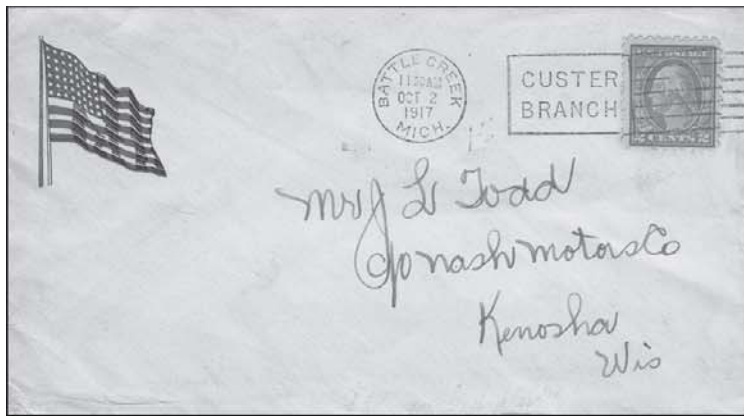 BATTLE CREEK
OCT 2
1917
MICH.
CUSTER
BRANCH
Mr J L Todd
C/o nash motors Co
Kenosha
Wis